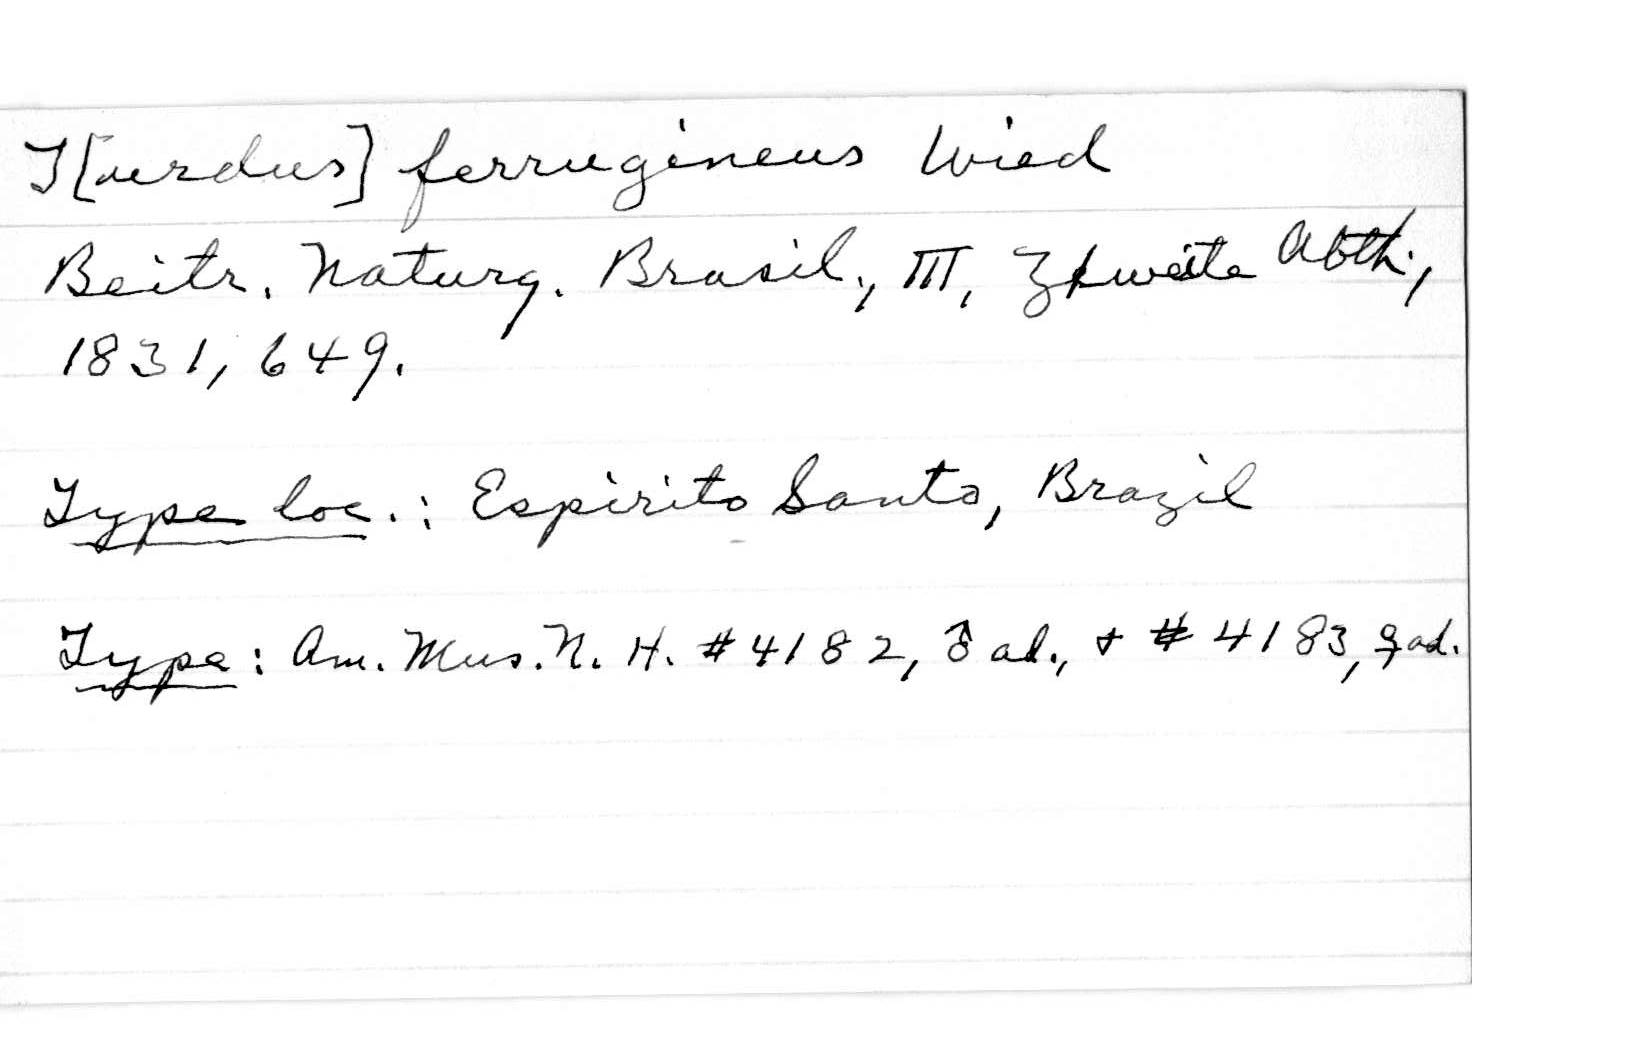 T[urdus] ferrugineus Wied
Beitr. Naturg. Brasil., III, Zweite Abth.,
1831, 649.
Type loc.: Espirito Santo, Brazil
Type: Am. Mus. N. H. #4182, ♂ ad., + #4183, ♀ ad.